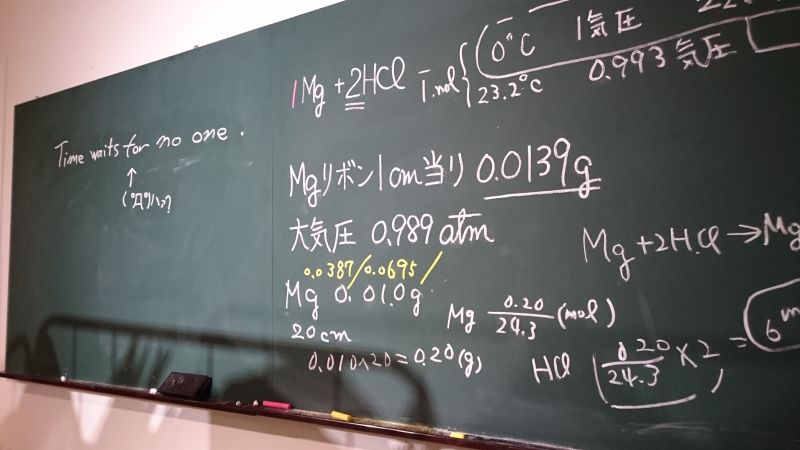 Time waits for no one.
↑
(゚Д゚)ハァ?
0℃ 1気圧
1Mg + 2HCl 1.mol 23.2℃ 0.993気圧
Mgリボン1cm当り 0.0139g
大気圧 0.989 atm
0.0387/0.0695/
Mg 0.010g
20cm
0.010×20=0.20(g)
Mg+2HCl→Mg
Mg 0.20/24.3 (mol)
HCl (0.20/24.3 ×2) =